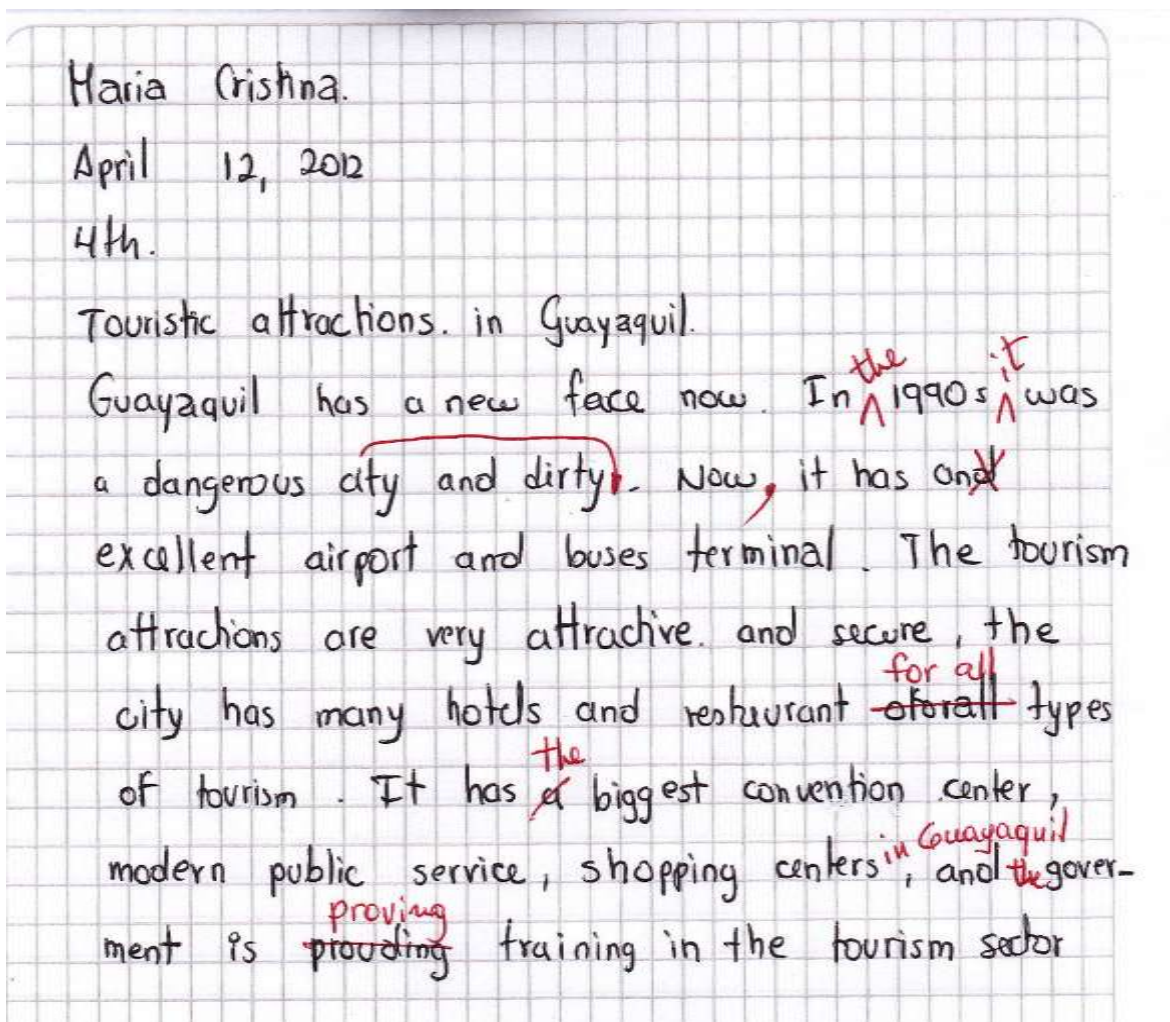 Maria Cristina.
April 12, 2012
4th.
Touristic attractions. in Guayaquil.
the it
Guayaquil has a new face now. In 1990s was
a dangerous city and dirty. Now, it has and
excellent airport and buses terminal. The tourism
attractions are very attractive. and secure, the
for all
city has many hotels and restaurant oforall types
the
of tourism. It has a biggest convention center,
in Guayaquil
modern public service, shopping centers, and the gover-
proving
ment is prouding training in the tourism sector